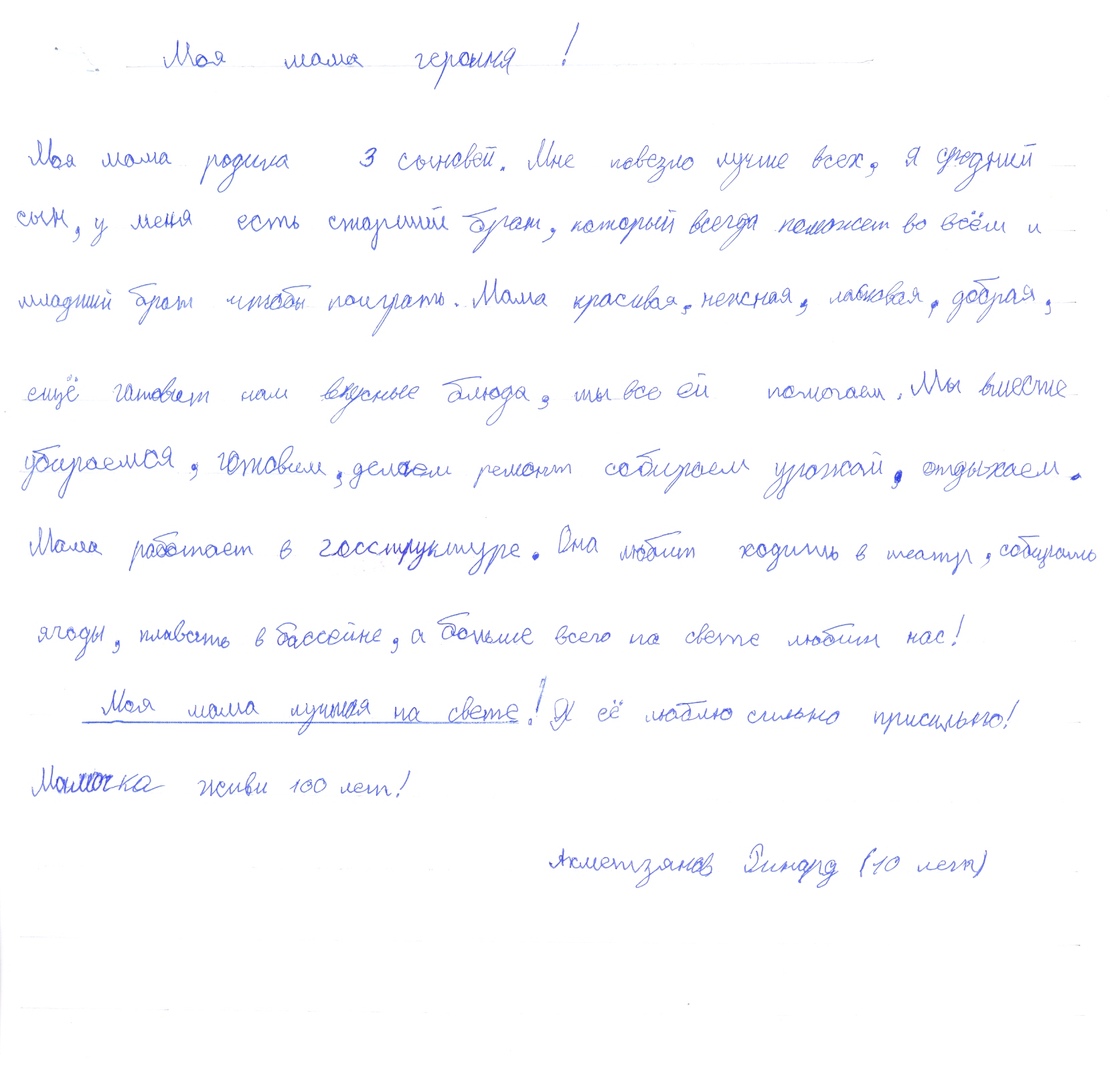 Моя мама героиня!
Моя мама родила 3 сыновей. Мне повезло лучше всех, я средний
сын, у меня есть старший брат, который всегда поможет во всём и
младший брат чтобы поиграть. Мама красивая, нежная, ласковая, добрая,
ещё готовит нам вкусные блюда, мы все ей помогаем. Мы вместе
убираемся, готовим, делаем ремонт собираем урожай, отдыхаем.
Мама работает в госструктуре. Она любит ходить в театр, собирать
ягоды, плавать в бассейне, а больше всего на свете любит нас!
Моя мама лучшая на свете! Я её люблю сильно присильно!
Мамочка живи 100 лет!
Ахметзянов Динард (10 лет)